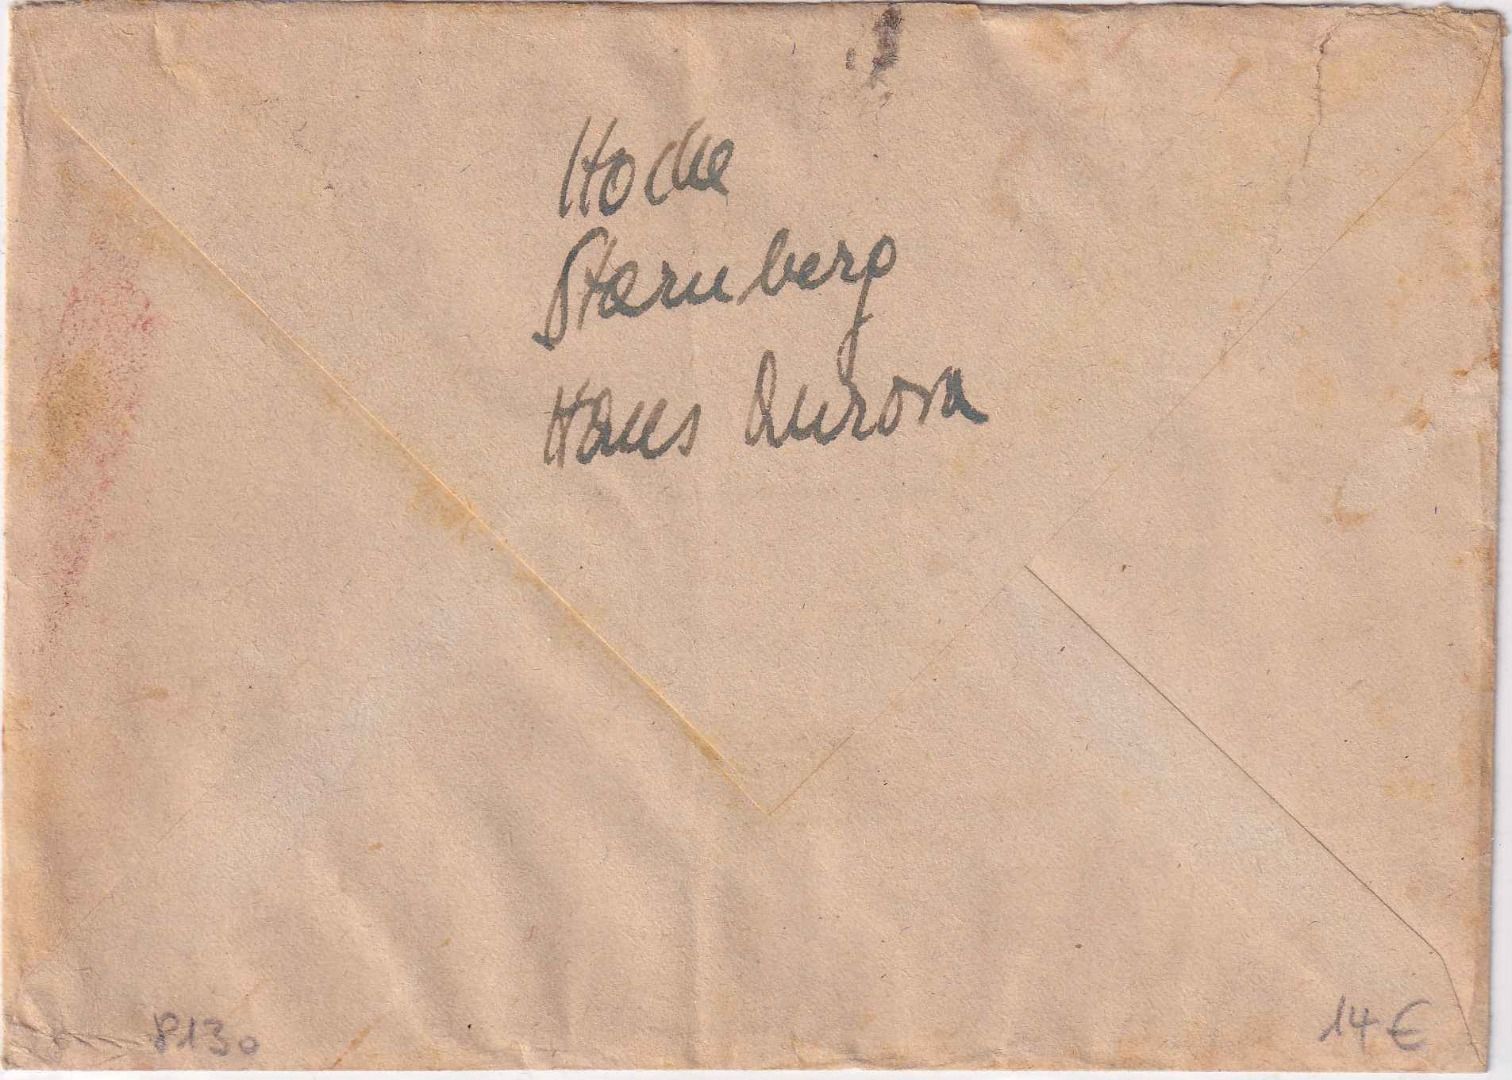 Hocke
Starnberg
Haus Aurora
8130
14 €